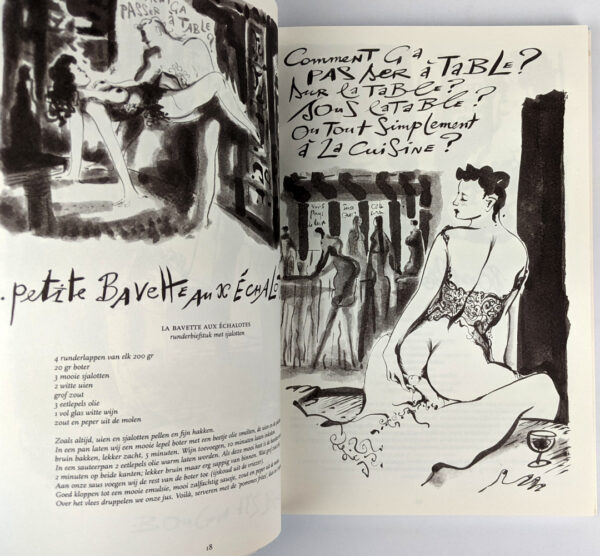 PASSER ÇA
à TABLE?
petite BAVette AuX ÉCHALO
LA BAVETTE AUX ÉCHALOTES
runderbiefstuk met sjalotten
4 runderlappen van elk 200 gr
20 gr boter
3 mooie sjalotten
2 witte uien
grof zout
3 eetlepels olie
1 vol glas witte wijn
zout en peper uit de molen
Zoals altijd, uien en sjalotten pellen en fijn hakken.
In een pan laten wij een mooie lepel boter met een beetje olie smelten, de uien en de
bruin bakken, lekker zacht, 5 minuten. Wijn toevoegen, 10 minuten laten
In een sauteerpan 2 eetlepels olie warm laten worden. Als deze mooi heet is de
2 minuten op beide kanten; lekker bruin maar erg sappig van binnen.
Aan onze saus voegen wij de rest van de boter toe (ijskoud uit de vriezer)
Goed kloppen tot een mooie emulsie, mooi zalfachtig sausje, zout en peper
Over het vlees druppelen we onze jus. Voilà, serveren met de 'pommes frites'
18
Comment ÇA
PASSER à TABLE?
Sur la TABLE?
Sous la TABLE?
Ou Tout Simplement
à La CuiSiNe?